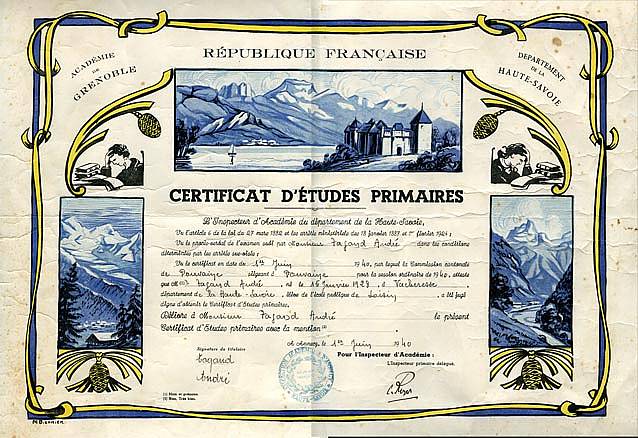 RÉPUBLIQUE FRANÇAISE
ACADÉMIE
DE
GRENOBLE
DÉPARTEMENT
DE LA
HAUTE-SAVOIE
CERTIFICAT D'ÉTUDES PRIMAIRES
L'Inspecteur d'Académie du département de la Haute-Savoie,
Vu l'article 6 de la loi du 27 mars 1882 et les arrêtés ministériels des 18 janvier 1887 et 1er février 1924 ;
Vu le procès-verbal de l'examen subi par Monsieur Fagard André dans les conditions
déterminées par les arrêtés sus-visés ;
Vu le certificat en date du 1er Juin 1940, par lequel la Commission cantonale
de Douvaine siégeant à Douvaine pour la session ordinaire de 1940, atteste
que M(1) Fagard André, né le 16 Janvier 1928, à Vacheresse
département de la Haute-Savoie, élève de l'école publique de Loisin, a été jugé
digne d'obtenir le Certificat d'Etudes primaires,
Délivre à Monsieur Fagard André le présent
Certificat d'Etudes primaires avec la mention (2)
A Annecy, le 1er Juin 1940
Signature du titulaire
Pour l'Inspecteur d'Académie :
L'Inspecteur primaire délégué,
Fagard
André
(1) Nom et prénoms.
(2) Bien, Très bien.